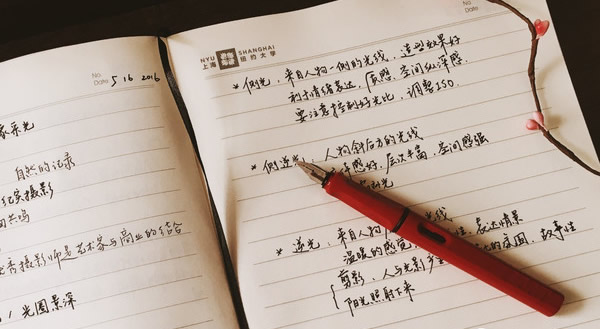 No.
Date 5 16 2016
自然的记录
纪实摄影
共鸣
摄影师是艺术家与商业的结合
光圈景深
NYU SHANGHAI
上海 纽约大学
No.
Date
* 侧光,来自人物一侧的光线,造型效果好
利于情绪表达,质感、空间纵深感.
要注意控制好光比,调整ISO.
* 侧逆光 人物斜后方的光线
感好,层次丰富,空间感强
* 逆光,来自人物 光线
温暖的感觉 表达情景
剪影、人与光影 的氛围,故事性
阳光照射下来